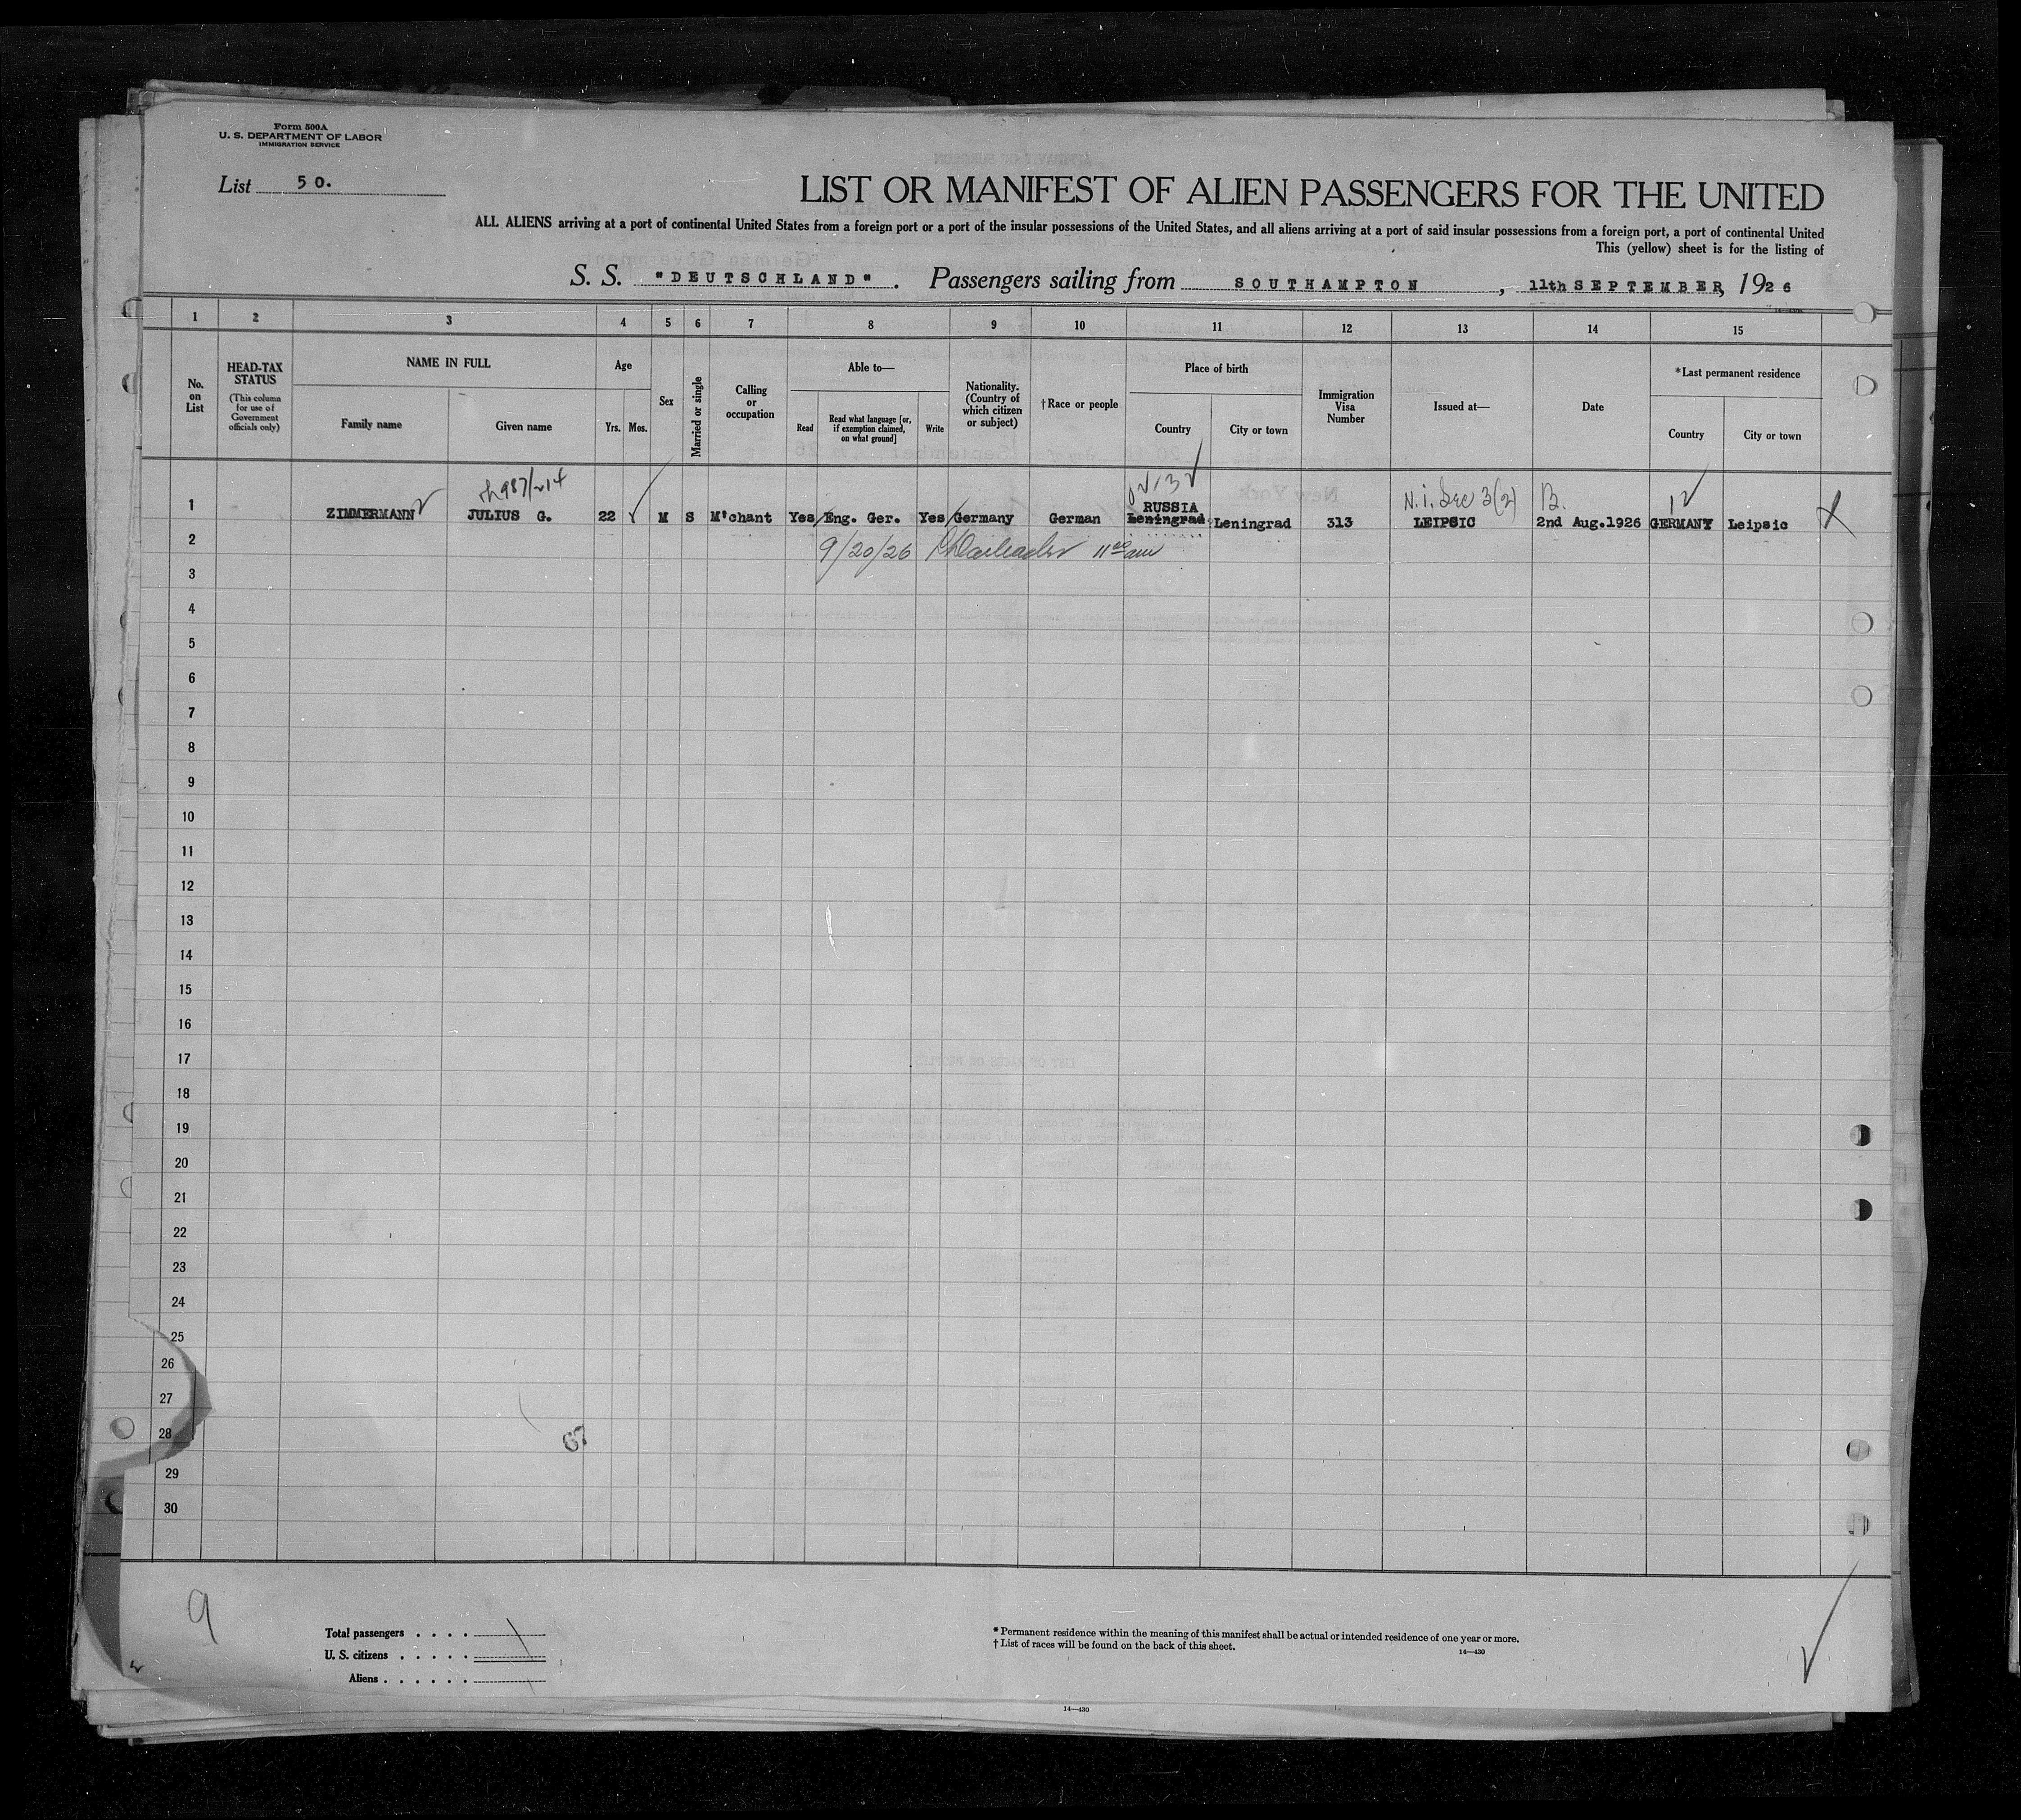 Form 500A
U. S. DEPARTMENT OF LABOR
IMMIGRATION SERVICE
List 50.
LIST OR MANIFEST OF ALIEN PASSENGERS FOR THE UNITED
ALL ALIENS arriving at a port of continental United States from a foreign port or a port of the insular possessions of the United States, and all aliens arriving at a port of said insular possessions from a foreign port, a port of continental United
This (yellow) sheet is for the listing of
S. S. "DEUTSCHLAND". Passengers sailing from SOUTHAMPTON, 11th SEPTEMBER, 1926
1 2 3 4 5 6 7 8 9 10 11 12 13 14 15
No. on List
HEAD-TAX STATUS
(This column for use of Government officials only)
NAME IN FULL
Family name
Given name
Age
Yrs. Mos.
Sex
Married or single
Calling or occupation
Able to—
Read
Read what language [or, if exemption claimed, on what ground]
Write
Nationality. (Country of which citizen or subject)
†Race or people
Place of birth
Country
City or town
Immigration Visa Number
Issued at—
Date
*Last permanent residence
Country
City or town
N.i. Sec 3(2) B.
RUSSIA
1 ZIMMERMANN JULIUS G. 22 M S M'chant Yes Eng. Ger. Yes Germany German Leningrad Leningrad 313 LEIPSIC 2nd Aug.1926 GERMANY Leipsic
2
9/20/26 11 00 am
3
4
5
6
7
8
9
10
11
12
13
14
15
16
17
18
19
20
21
22
23
24
25
26
27
28
67
29
30
9
Total passengers . . . .
U. S. citizens . . . . .
Aliens . . . . . .
* Permanent residence within the meaning of this manifest shall be actual or intended residence of one year or more.
† List of races will be found on the back of this sheet.
14—430
14—430